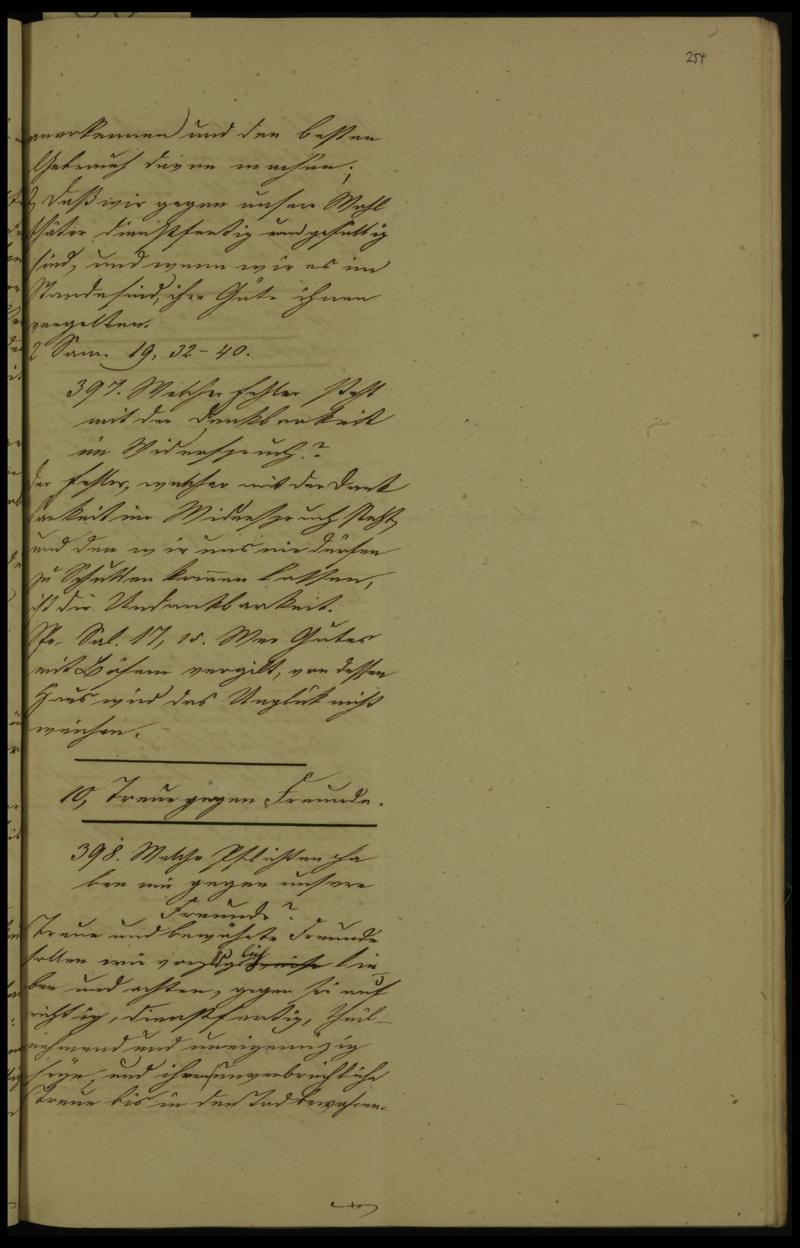 254
anerkennen) und den besten
Gebrauch davon machen;
2, daß wir gegen unsere Wohl
thäter dienstfertig und gefällig
sind, und wenn wir es im
Stande sind, ihre Güte ihnen
vergelten.
2 Sam. 19, 32-40.
397. Welcher Fehler steht
mit der Dankbarkeit
im Widerspruch?
Der Fehler, welcher mit der Dank
barkeit im Widerspruch steht,
und den wir uns nie dürfen
zu Schulden kommen lassen,
ist die Undankbarkeit.
Spr. Sal. 17, 13. Wer Gutes
mit Bösem vergilt, von dessen
Haus wird das Unglück nicht
weichen. -
10, Treue gegen Freunde.
398. Welche Pflichten ha
ben wir gegen unsere
Freunde?
Treue und bewährte Freunde
sollen wir vorzüglich lie
ben und achten, gegen sie auf
richtig, dienstfertig, theil-
nehmend und uneigennüzig
seyn, und ihnen unverbrüchliche
Treue bis in den Tod bewahren.